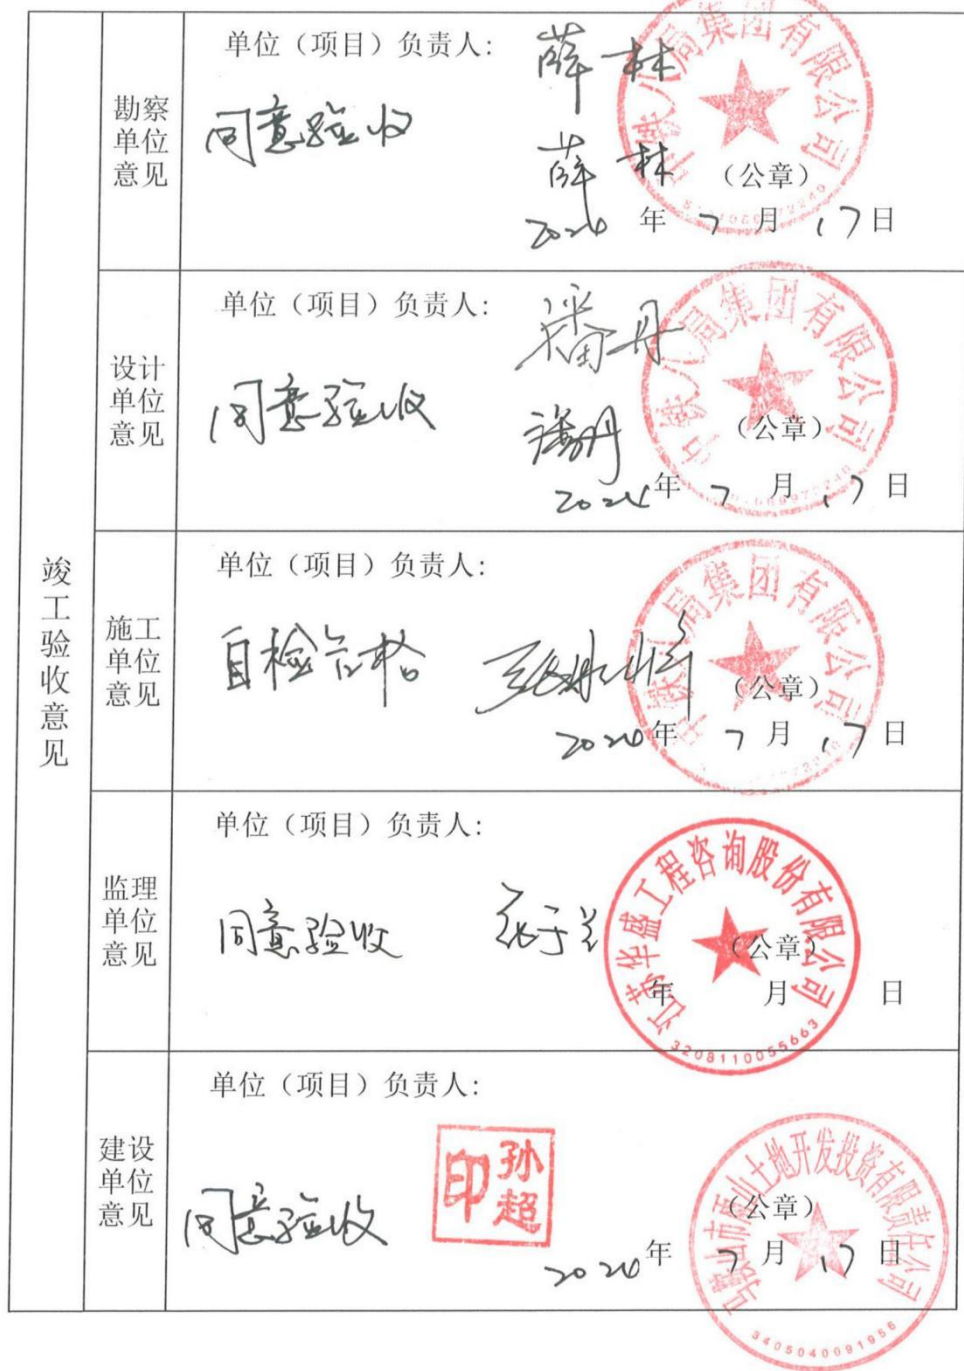 竣工验收意见
勘察单位意见
单位（项目）负责人：
薛林
同意验收
薛林
（公章）
2024年7月17日
中铁八局集团有限公司
设计单位意见
单位（项目）负责人：
潘丹
同意验收
潘丹
（公章）
2024年7月17日
中铁八局集团有限公司
施工单位意见
单位（项目）负责人：
自检合格
（公章）
2024年7月17日
中铁八局集团有限公司
监理单位意见
单位（项目）负责人：
同意验收
（公章）
年 月 日
江苏华盛工程咨询股份有限公司
3208110055663
建设单位意见
单位（项目）负责人：
同意验收
孙超印
（公章）
2024年7月17日
马鞍山市雨山土地开发投资有限责任公司
3405040091956